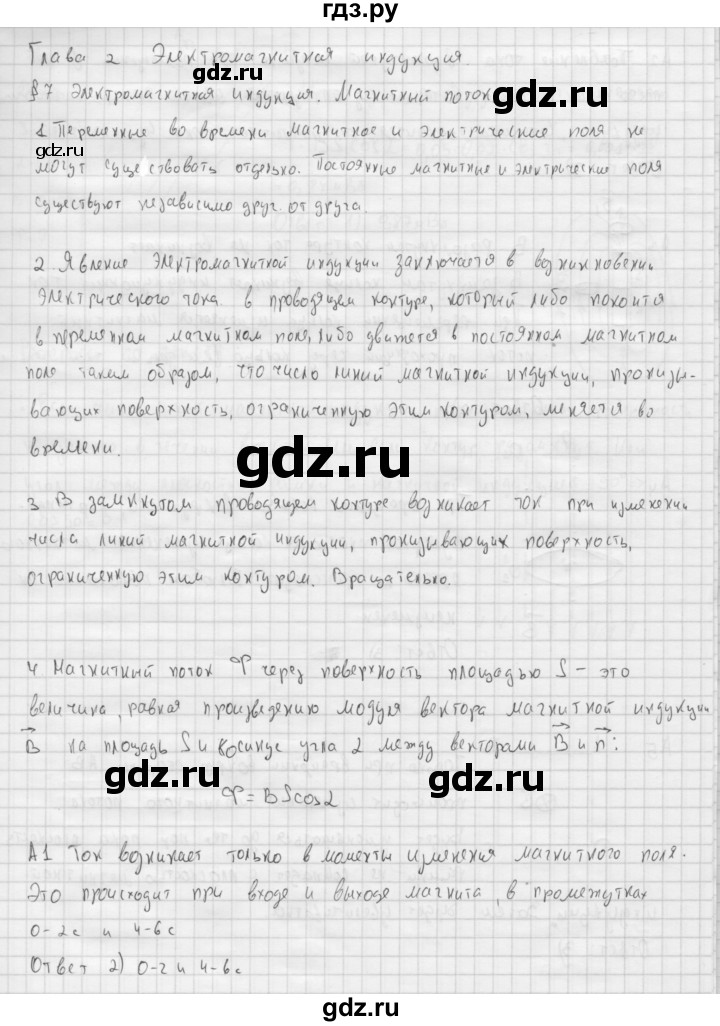 гдз.ру
Глава 2 Электромагнитная индукция.
gdz.ru
§7 Электромагнитная индукция. Магнитный поток
1 Переменные во времени магнитное и электрические поля не
gdz.ru
могут существовать отдельно. Постоянные магнитные и электрические поля
существуют независимо друг от друга.
2 Явление электромагнитной индукции заключается в возникновении
электрического тока в проводящем контуре, который либо покоится
в переменном магнитном поле, либо движется в постоянном магнитном
поле таким образом, что число линий магнитной индукции, пронизы-
вающих поверхность, ограниченную этим контуром, меняется во
времени.
gdz.ru
3 В замкнутом проводящем контуре возникает ток при изменении
числа линий магнитной индукции, пронизывающих поверхность,
ограниченную этим контуром. Вращательно.
4 Магнитный поток Ф через поверхность площадью S – это
величина, равная произведению модуля вектора магнитной индукции
B на площадь S и косинус угла 2 между векторами B и n:
gdz.ru
gdz.ru
Ф = BS cos 2
А1 Ток возникает только в моменты изменения магнитного поля.
Это происходит при входе и выходе магнита, в промежутках
0-2с и 4-6с
gdz.ru
gdz.ru
Ответ 2) 0-2 и 4-6с
gdz.ru